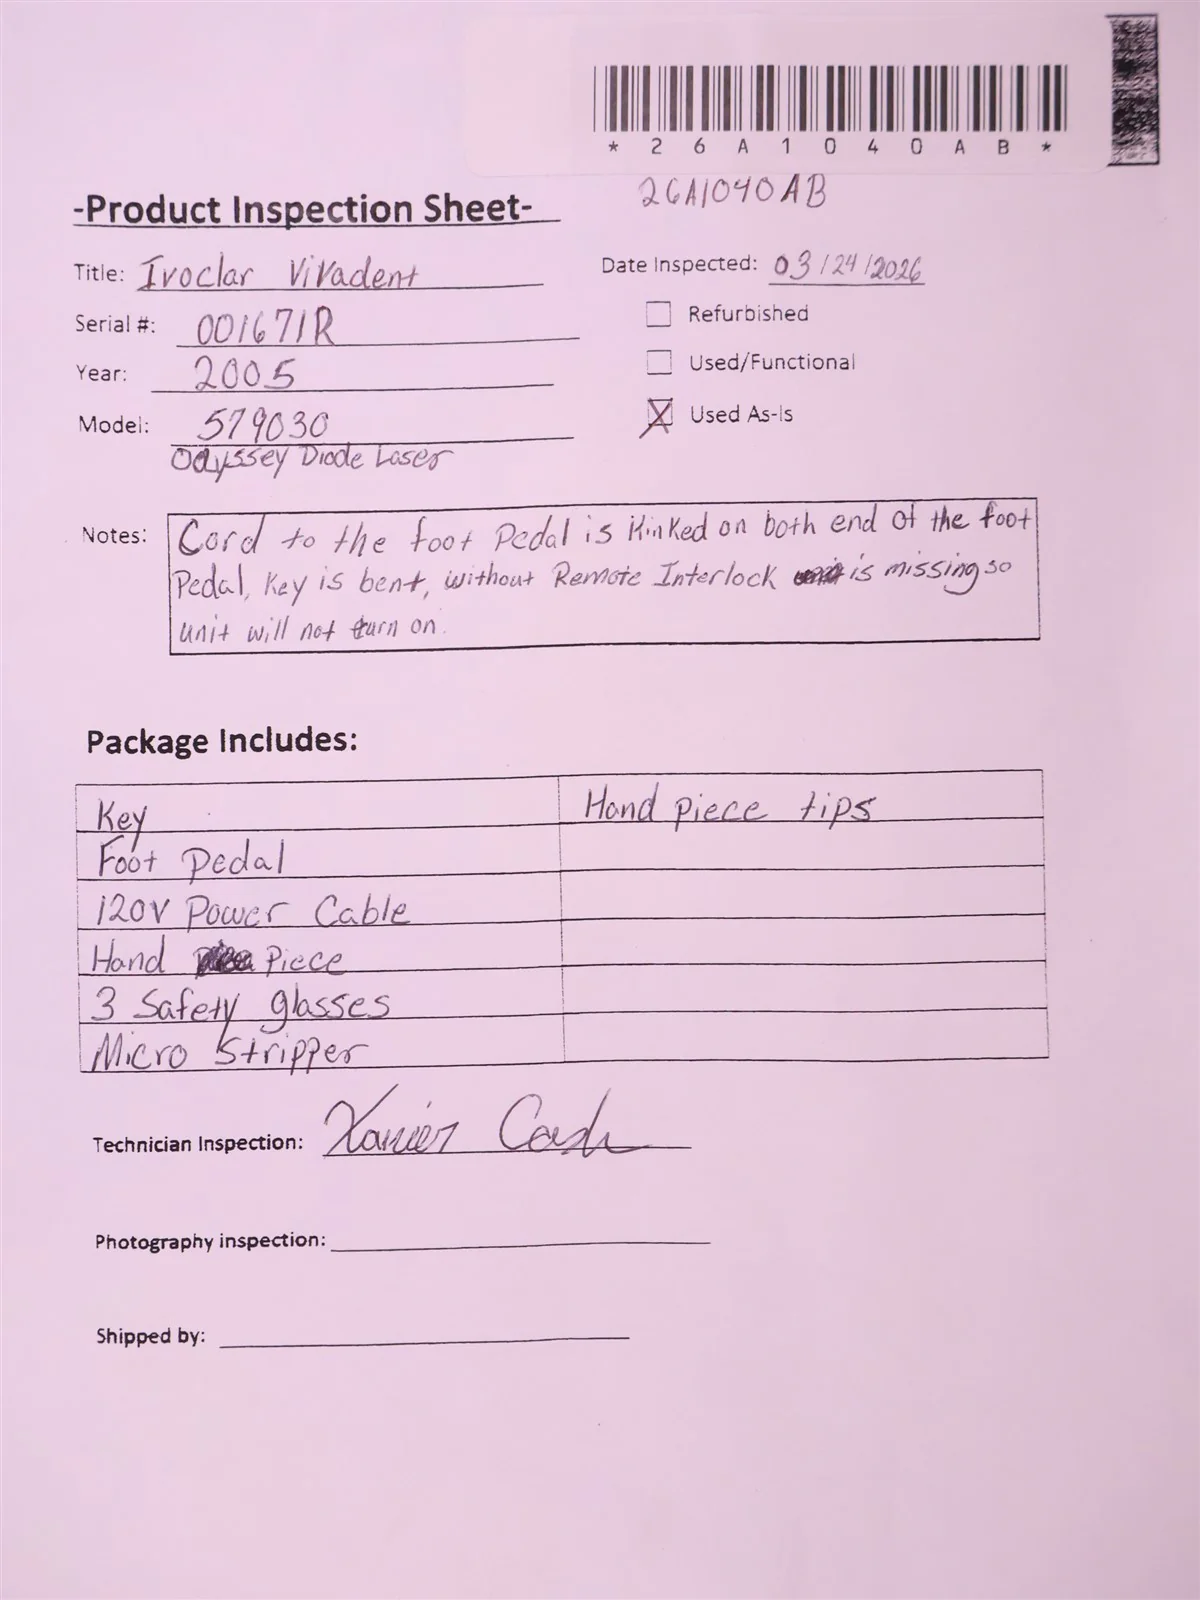 * 2 6 A 1 0 4 0 A B *
26A1040AB
-Product Inspection Sheet-
Title: Ivoclar Vivadent
Date Inspected: 03/24/2026
Serial #: 001671R
Refurbished
Year: 2005
Used/Functional
Model: 579030
Used As-Is
Odyssey Diode Laser
Notes: Cord to the foot Pedal is Kinked on both end of the foot
Pedal, Key is bent, without Remote Interlock is missing so
unit will not turn on.
Package Includes:
Key
Hand piece tips
Foot Pedal
120V Power Cable
Hand Piece
3 Safety glasses
Micro Stripper
Technician Inspection: Xavier Cash
Photography inspection:
Shipped by: